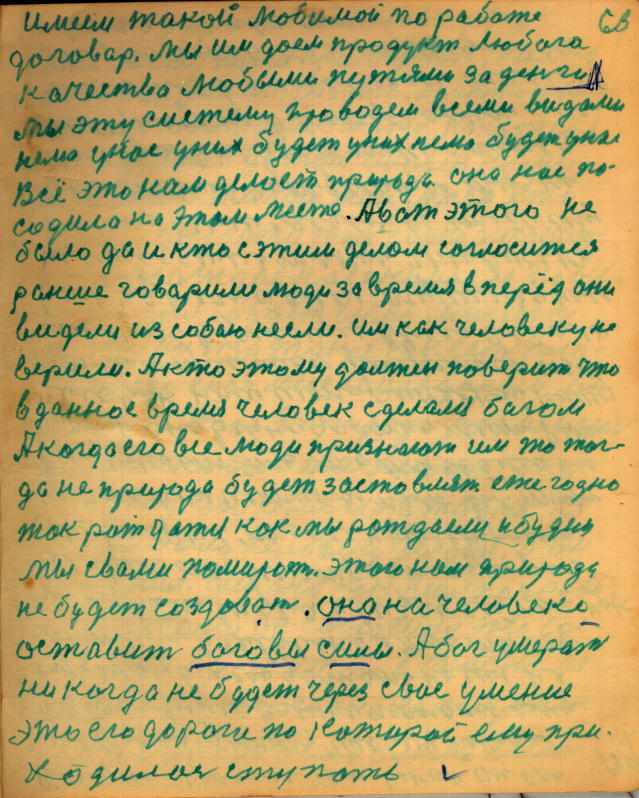 имеем такой любимой по работе 68
договар. мы им даем продукт любога
качества любыми путями за деньги
мы эту систему проводем всеми видами
нема унас уних будет уних нема будет унас
Всё это нам делает природа она нас по-
садила на этом месте. А вот этого не
было да и кто с этим делом согласится
ранше говарили люди за время вперёд они
видели из собаю несли. им как человеку не
верили. А кто этому должен поверит что
в данное время человек сделался богом
А когда его все люди признают им то тог-
да не природа будет заставлят ежегодно
так рождатся как мы рождаемся и будем
мы свами помират. этого нам природа
не будет создават. она на человека
оставит боговы силы. А бог умерат
никогда не будет через свое умение
это его дорога по которой ему при-
ходилося ступать